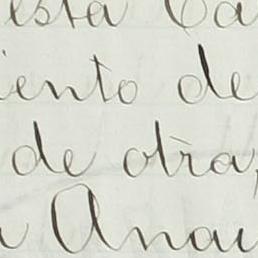 esta Ca
iento de
de otra,
a Anau